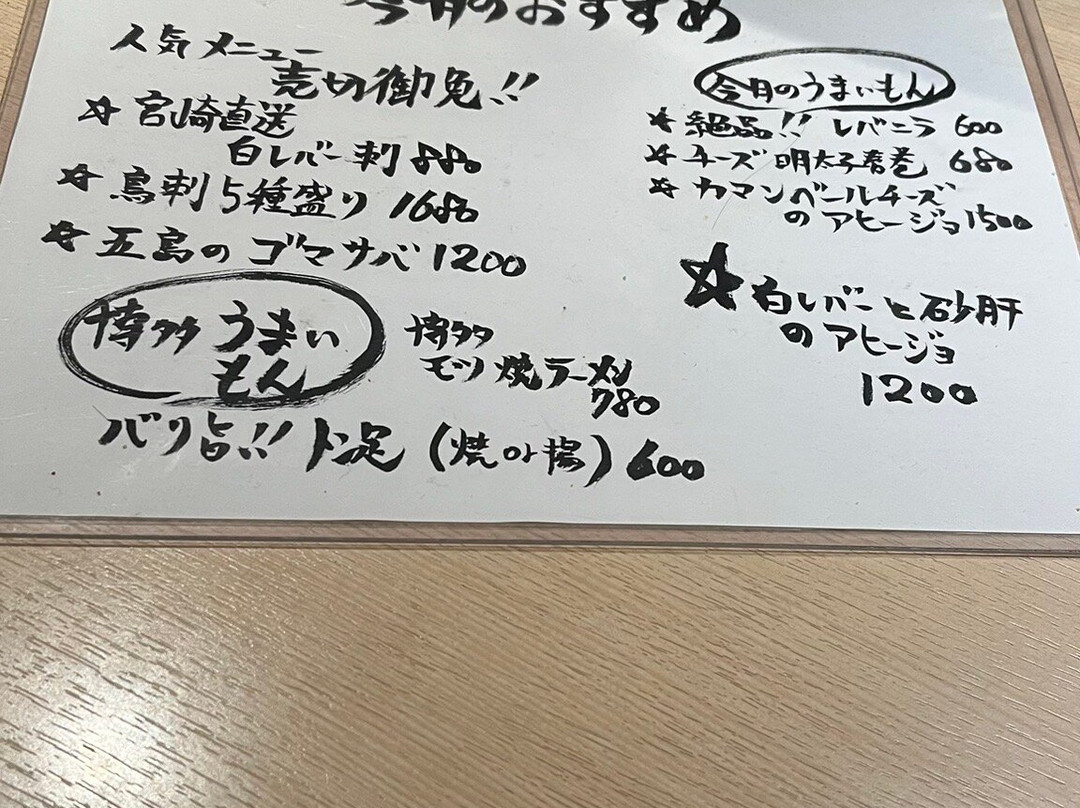 今月のおすすめ
人気メニュー
売切御免!!
☆宮崎直送
白レバー刺 880
☆鳥刺5種盛り 1680
☆五島のゴマサバ 1200
博多うまい
もん
博多
モツ焼ラーメン
780
バリ旨!! トン足(焼or揚) 600
今月のうまいもん
★絶品!! レバニラ 600
☆チーズ明太子春巻 680
☆カマンベールチーズ
のアヒージョ 1500
☆白レバーと砂肝
のアヒージョ
1200